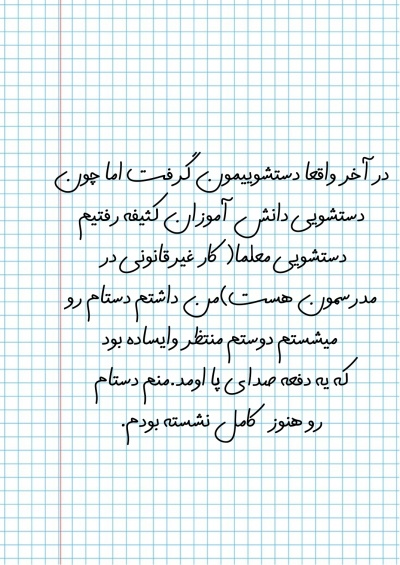 در آخر واقعا دستشوییمون گرفت اما چون
دستشویی دانش آموزان کثیفه رفتیم
دستشویی معلما( کار غیرقانونی در
مدرسمون هست)من داشتم دستام رو
میشستم دوستم منتظر وایساده بود
که یه دفعه صدای پا اومد.منم دستام
رو هنوز کامل نشسته بودم.